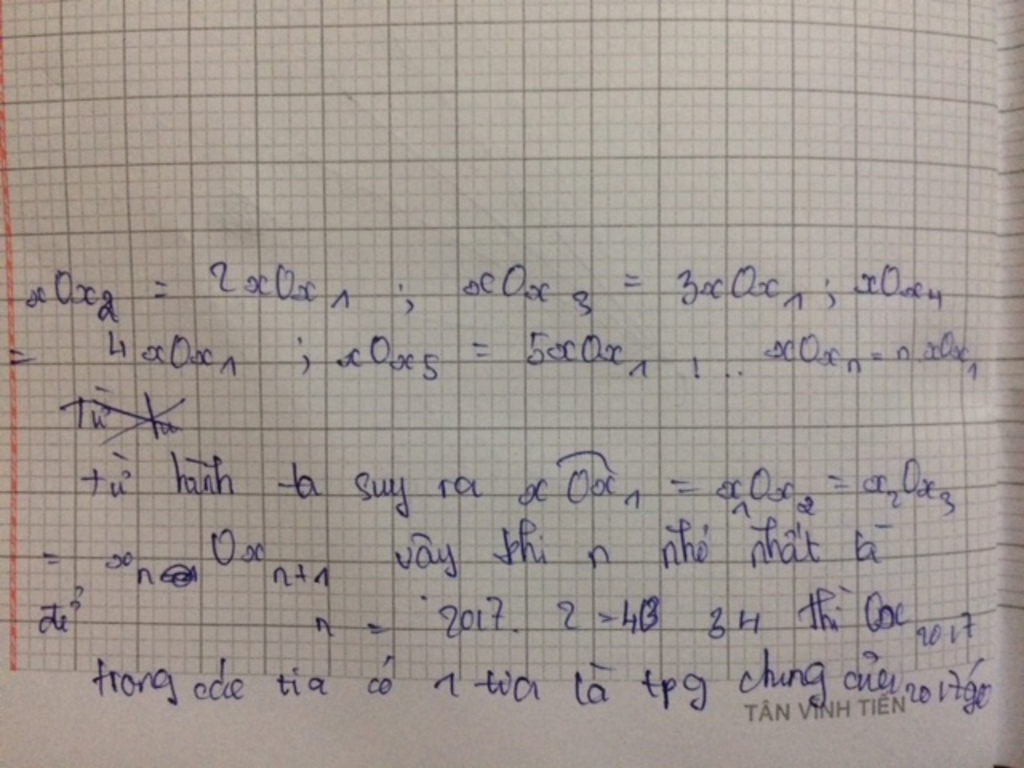 xOx₂ = 2xOx₁ ; xOx₃ = 3xOx₁ ; xOx₄
= 4xOx₁ ; xOx₅ = 5xOx₁ ! .. xOxₙ = n xOx₁
Từ
từ hành ta suy ra xOx₁ = x₁Ox₂ = x₂Ox₃
= xₙOxₙ₊₁ vậy khi n nhỏ nhất là
để n = 2017. 2 = 40 34 thì Ox₂₀₁₇
trong các tia có 1 tia là tpg chung của 2017 góc
TÂN VĨNH TIẾN